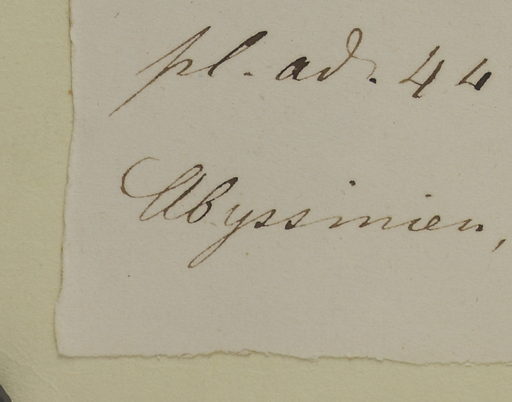 pl. ad. 44
Abyssinien,